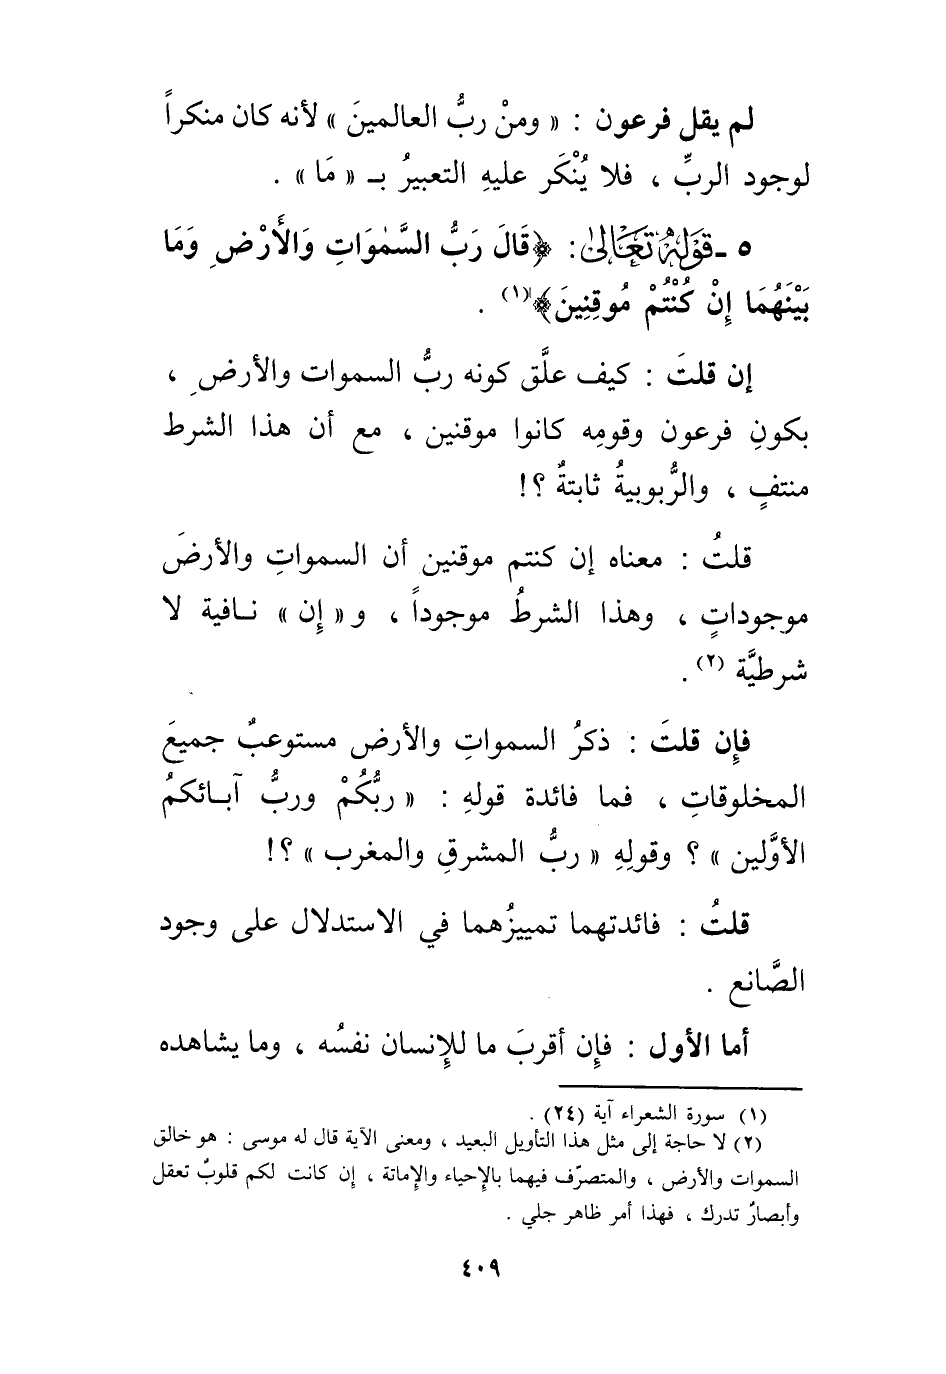 لم يقل فرعون : « ومنْ ربُّ العالمينَ » لأنه كان منكراً
لوجود الربِّ ، فلا يُنْكَر عليهِ التعبيرُ بـ « مَا » .
٥ ـ قَوْلُهُ تَعَالىٰ: ﴿قَالَ رَبُّ السَّمٰوَاتِ وَالأَرْضِ وَمَا
بَيْنَهُمَا إِنْ كُنْتُمْ مُوقِنِينَ﴾(١) .
إن قلتَ : كيف علَّق كونه ربُّ السموات والأرضِ ،
بكونِ فرعون وقومِه كانوا موقنين ، مع أن هذا الشرط
منتفٍ ، والرُّبوبيةُ ثابتةٌ ؟!
قلتُ : معناه إن كنتم موقنين أن السمواتِ والأرضَ
موجوداتٍ ، وهذا الشرطُ موجوداً ، و « إِن » نـافية لا
شرطيَّة (٢) .
فإِن قلتَ : ذكرُ السمواتِ والأرضِ مستوعبٌ جميعَ
المخلوقاتِ ، فما فائدة قولهِ : « ربُّكُمْ وربُّ آبـائكمُ
الأوَّلين » ؟ وقولِهِ « ربُّ المشرقِ والمغرب » ؟!
قلتُ : فائدتهما تمييزُهما في الاستدلال على وجود
الصَّانع .
أما الأول : فإِن أقربَ ما للإِنسان نفسُه ، وما يشاهده
(١) سورة الشعراء آية (٢٤) .
(٢) لا حاجة إلى مثل هذا التأويل البعيد ، ومعنى الآية قال له موسى : هو خالق
السموات والأرض ، والمتصرّف فيهما بالإِحياء والإِماتة ، إِن كانت لكم قلوبٌ تعقل
وأبصارٌ تدرك ، فهذا أمر ظاهر جلي .
٤٠٩